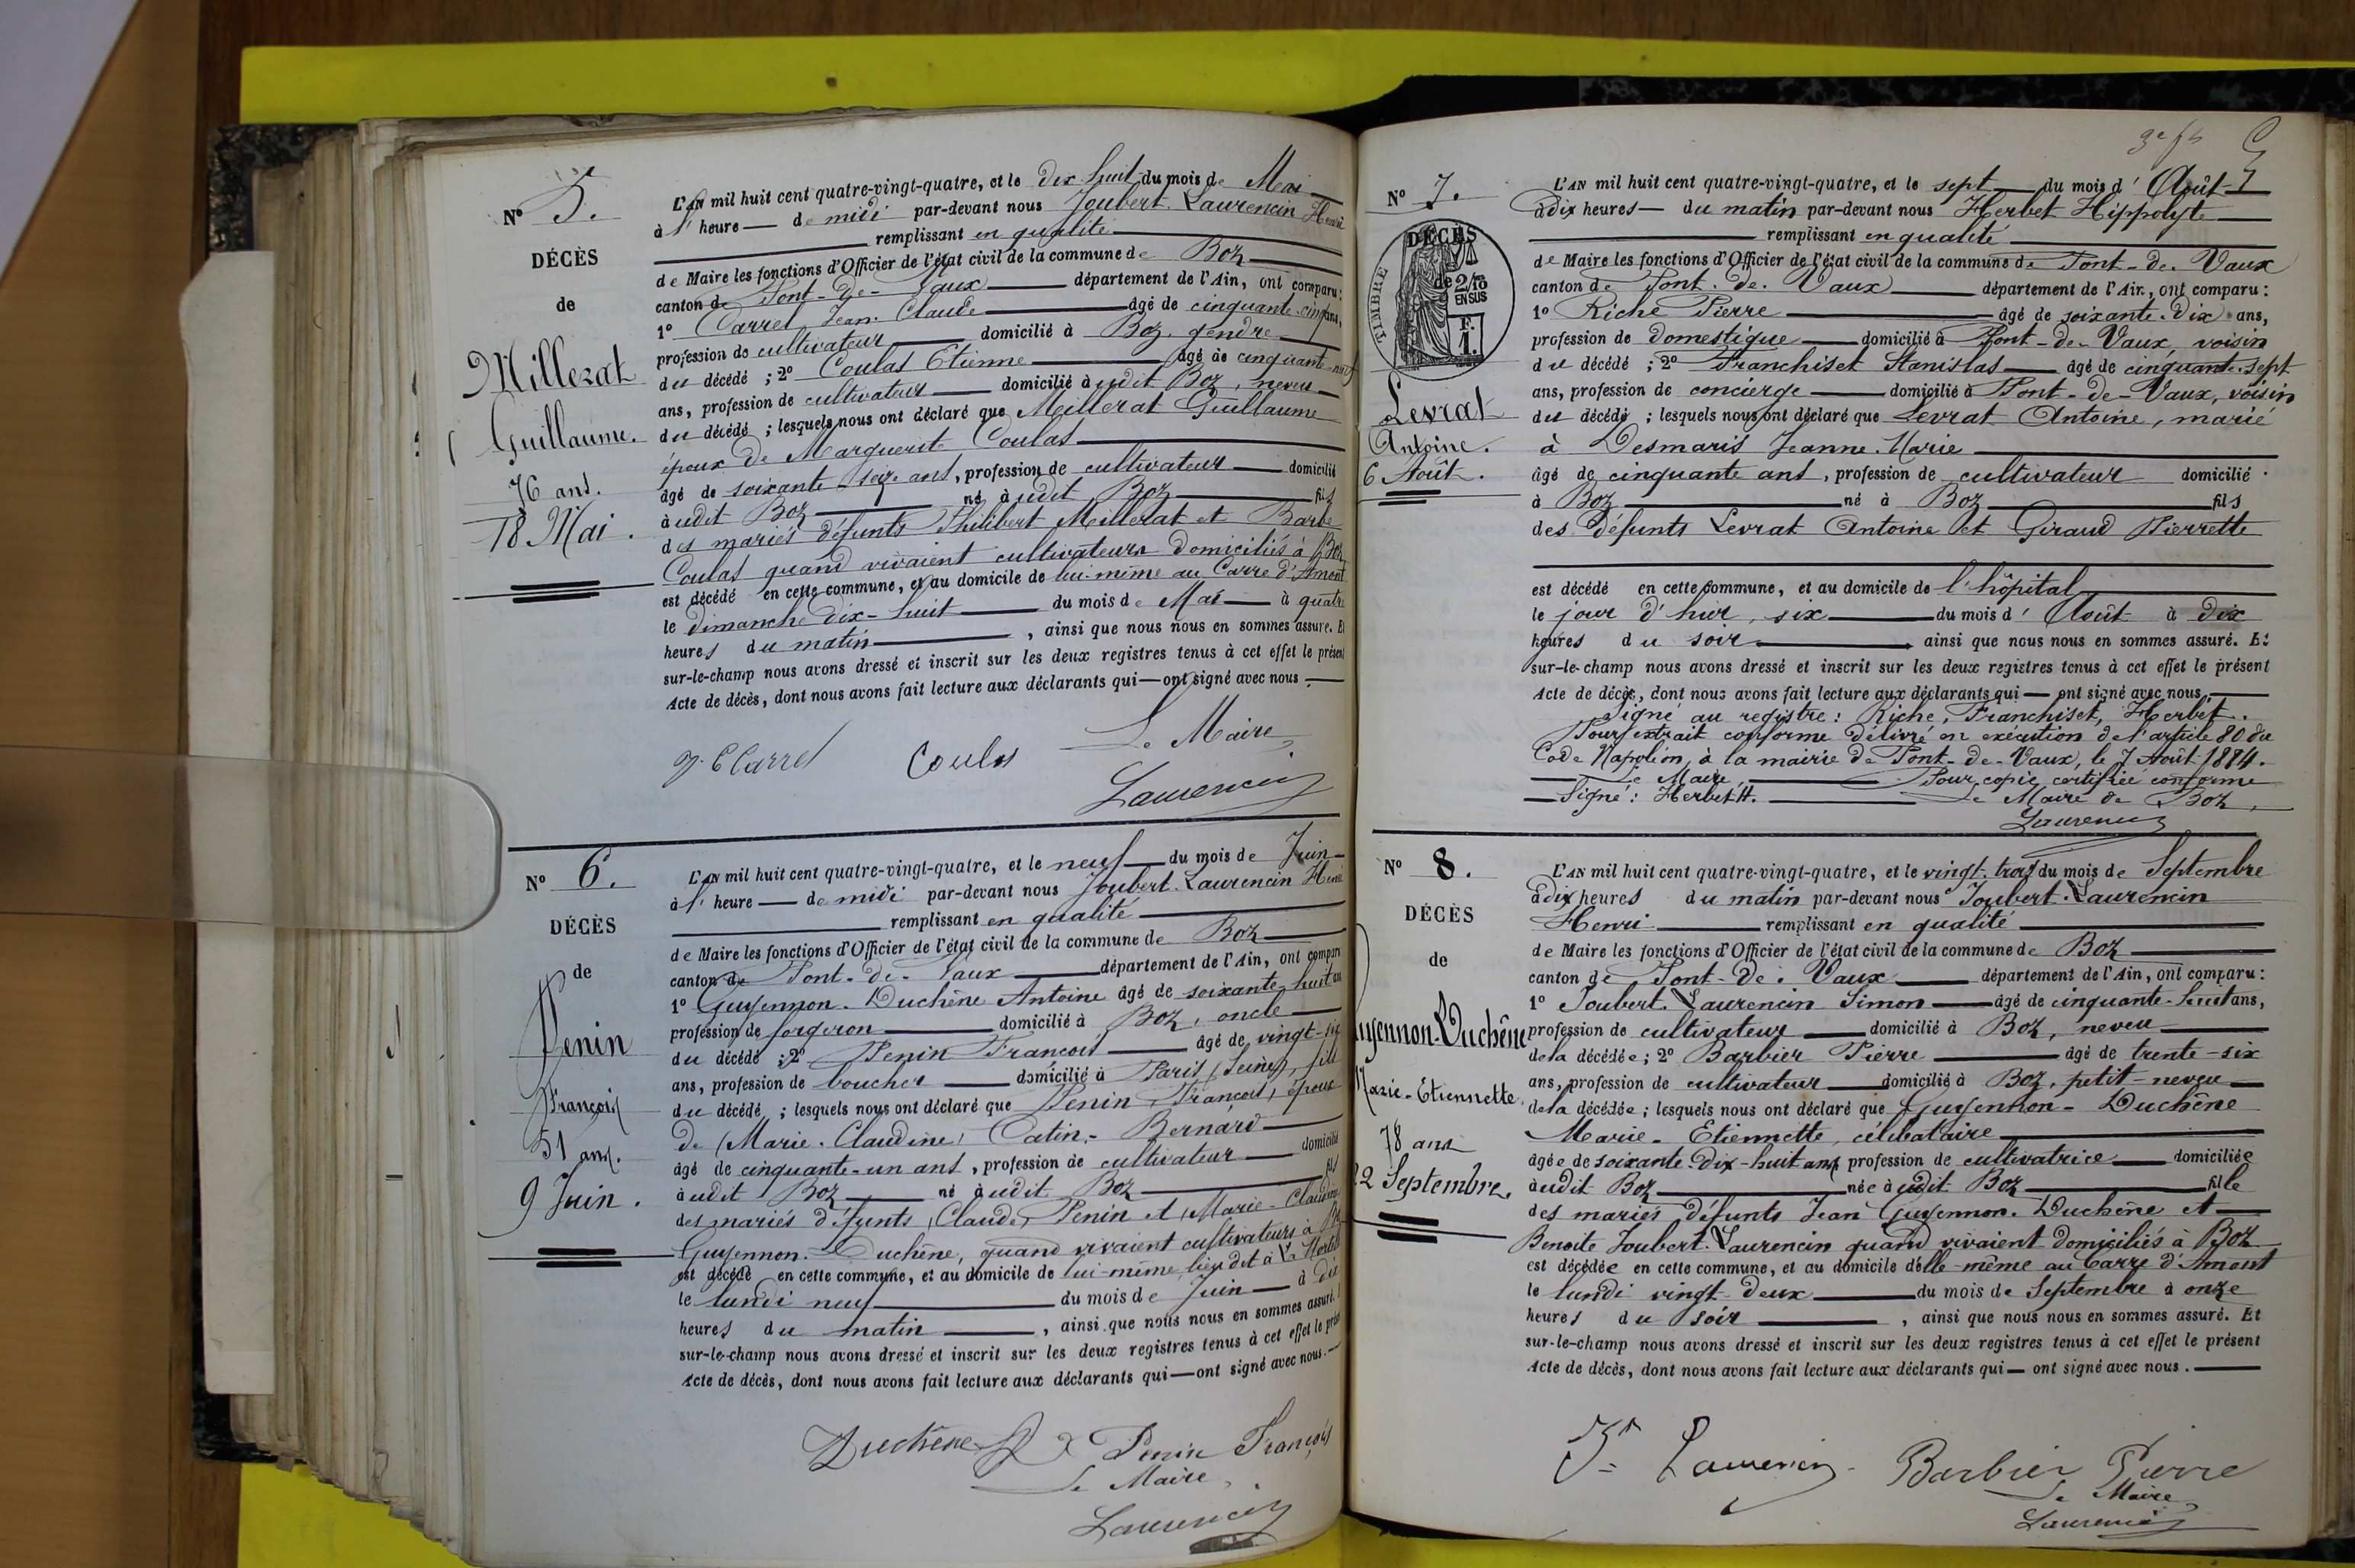 N° 5.
DÉCÈS
de
Millerat
Guillaume.
76 ans.
18 Mai.
L'AN mil huit cent quatre-vingt-quatre, et le dix huit du mois de Mai
à l' heure de midi par-devant nous Joubert-Laurencin Henri
remplissant en qualité
de Maire les fonctions d'Officier de l'état civil de la commune de Boz
canton de Pont-de-Vaux département de l'Ain, ont comparu:
1° Carrel Jean-Claude âgé de cinquante-cinq ans,
profession de cultivateur domicilié à Boz, gendre
du décédé ; 2° Coulas Etienne âgé de cinquante-neuf
ans, profession de cultivateur domicilié à udit Boz, neveu
du décédé ; lesquels nous ont déclaré que Meillerat Guillaume
époux de Marguerite Coulas
âgé de soixante seize ans, profession de cultivateur domicilié
à udit Boz né à udit Boz fils
des mariés défunts Philibert Meillerat et Barbe
Coulas quand vivaient cultivateurs domiciliés à Boz
est décédé en cette commune, et au domicile de lui-même au Carre d'Amont
le dimanche dix-huit du mois de Mai à quatre
heures du matin , ainsi que nous nous en sommes assuré. Et
sur-le-champ nous avons dressé et inscrit sur les deux registres tenus à cet effet le présent
Acte de décès, dont nous avons fait lecture aux déclarants qui — ont signé avec nous.
J. C Carrel Coulas Le Maire
Laurencin
N° 6.
DÉCÈS
de
Penin
François
51 ans.
9 Juin.
L'AN mil huit cent quatre-vingt-quatre, et le neuf du mois de Juin
à l' heure de midi par-devant nous Joubert-Laurencin Henri
remplissant en qualité
de Maire les fonctions d'Officier de l'état civil de la commune de Boz
canton de Pont-de-Vaux département de l'Ain, ont comparu
1° Guyennon-Duchêne Antoine âgé de soixante-huit ans
profession de forgeron domicilié à Boz, oncle
du décédé ; 2° Penin François âgé de vingt-six
ans, profession de boucher domicilié à Paris (Seine), fils
du décédé ; lesquels nous ont déclaré que Penin, François, époux
de (Marie-Claudine) Catin-Bernard
âgé de cinquante-un ans, profession de cultivateur domicilié
à udit Boz né à udit Boz fils
des mariés défunts (Claude) Penin et (Marie-Claudine
Guyennon-Duchêne, quand vivaient cultivateurs à Boz
est décédé en cette commune, et au domicile de lui-même, lieu dit à La
le lundi neuf du mois de Juin à dix
heures du matin , ainsi que nous nous en sommes assuré.
sur-le-champ nous avons dressé et inscrit sur les deux registres tenus à cet effet le présent
Acte de décès, dont nous avons fait lecture aux déclarants qui — ont signé avec nous.
Duchêne Penin François
Le Maire,
Laurencin
N° 7.
DÉCÈS
TIMBRE
de 2/10
EN SUS
F.
1.
Levrat
Antoine.
6 Août.
L'AN mil huit cent quatre-vingt-quatre, et le sept du mois d' Août
à dix heures du matin par-devant nous Herbet Hippolyte
remplissant en qualité
de Maire les fonctions d'Officier de l'état civil de la commune de Pont-de-Vaux
canton de Pont-de-Vaux département de l'Ain, ont comparu :
1° Riche Pierre âgé de soixante-dix ans,
profession de domestique domicilié à Pont-de-Vaux, voisin
du décédé ; 2° Franchiset Stanislas âgé de cinquante-sept
ans, profession de concierge domicilié à Pont-de-Vaux, voisin
du décédé ; lesquels nous ont déclaré que Levrat Antoine, marié
à Desmaris Jeanne-Marie
âgé de cinquante ans, profession de cultivateur domicilié
à Boz né à Boz fils
des défunts Levrat Antoine et Giraud Pierrette
est décédé en cette commune, et au domicile de l'hôpital
le jour d'hier, six du mois d' Août à dix
heures du soir , ainsi que nous nous en sommes assuré. Et
sur-le-champ nous avons dressé et inscrit sur les deux registres tenus à cet effet le présent
Acte de décès, dont nous avons fait lecture aux déclarants qui — ont signé avec nous.
Signé au registre : Riche, Franchiset, Herbet.
Pour extrait conforme délivré en exécution de l'article 80 du
Code Napoléon, à la mairie de Pont-de-Vaux, le 7 Août 1884.
Le Maire, Pour copie certifiée conforme
Signé : Herbet H. Le Maire de Boz,
Laurencin
N° 8.
DÉCÈS
de
uyennon-Duchêne
Marie-Etiennette.
78 ans
22 Septembre.
L'AN mil huit cent quatre-vingt-quatre, et le vingt-trois du mois de Septembre
à dix heures du matin par-devant nous Joubert-Laurencin
Henri remplissant en qualité
de Maire les fonctions d'Officier de l'état civil de la commune de Boz
canton de Pont-de-Vaux département de l'Ain, ont comparu :
1° Joubert-Laurencin Simon âgé de cinquante-huit ans,
profession de cultivateur domicilié à Boz, neveu
de la décédée ; 2° Barbier Pierre âgé de trente-six
ans, profession de cultivateur domicilié à Boz, petit-neveu
de la décédée ; lesquels nous ont déclaré que Guyennon-Duchêne
Marie-Etiennette, célibataire
âgée de soixante-dix-huit ans profession de cultivatrice domiciliée
à udit Boz née à udit Boz fille
des mariés défunts Jean Guyennon-Duchêne et
Benoite Joubert-Laurencin quand vivaient domiciliés à Boz
est décédée en cette commune, et au domicile d'elle-même au Carre d'Amont
le lundi vingt-deux du mois de Septembre à onze
heures du soir , ainsi que nous nous en sommes assuré. Et
sur-le-champ nous avons dressé et inscrit sur les deux registres tenus à cet effet le présent
Acte de décès, dont nous avons fait lecture aux déclarants qui — ont signé avec nous.
Laurencin Barbier Pierre
Le Maire
Laurencin